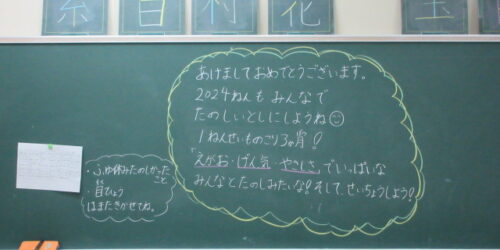 糸 目 村 花 玉
あけましておめでとうございます。
2024ねんも みんなで
たのしいとしにしようね
1ねんせいものこり3か月!
「えがお・げん気・やさしさ」でいっぱいな
みんなとたのしみたいな!そして、せいちょうしよう!
・ふゆ休みたのしかった
こと
・目ひょう
はまたきかせてね。